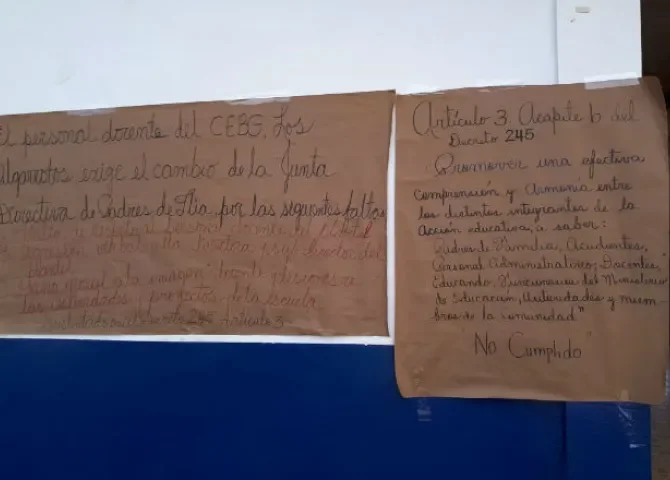 El personal docente del CEBG. Los
Algarrobos exige el cambio de la Junta
Directiva de Padres de Flia, por las siguientes faltas
plantel
Daño moral a la imagen
las actividades y proyectos de la escuela
Decreto 245 Artículo 3
Artículo 3 Acapite b del
Decreto 245
Promover una efectiva
comprensión y Armonía entre
los distintos integrantes de la
acción educativa, a saber:
Padres de Familia, Acudientes,
Personal Administrativo, Docentes,
Educando, Funcionarios del Ministerio
de Educación, Autoridades y miem
bros de la comunidad"
No Cumplido